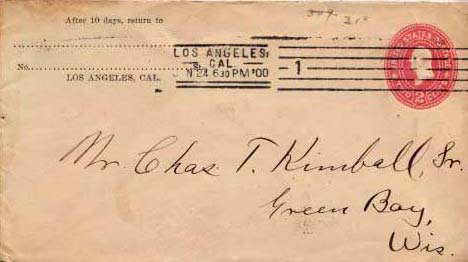 309 310
After 10 days, return to
No.
LOS ANGELES, CAL.
LOS ANGELES,
CAL.
N 24 630 PM '00
1
UNITED STATES
2
Mr. Chas. T. Kimball, Sr.
Green Bay,
Wis.